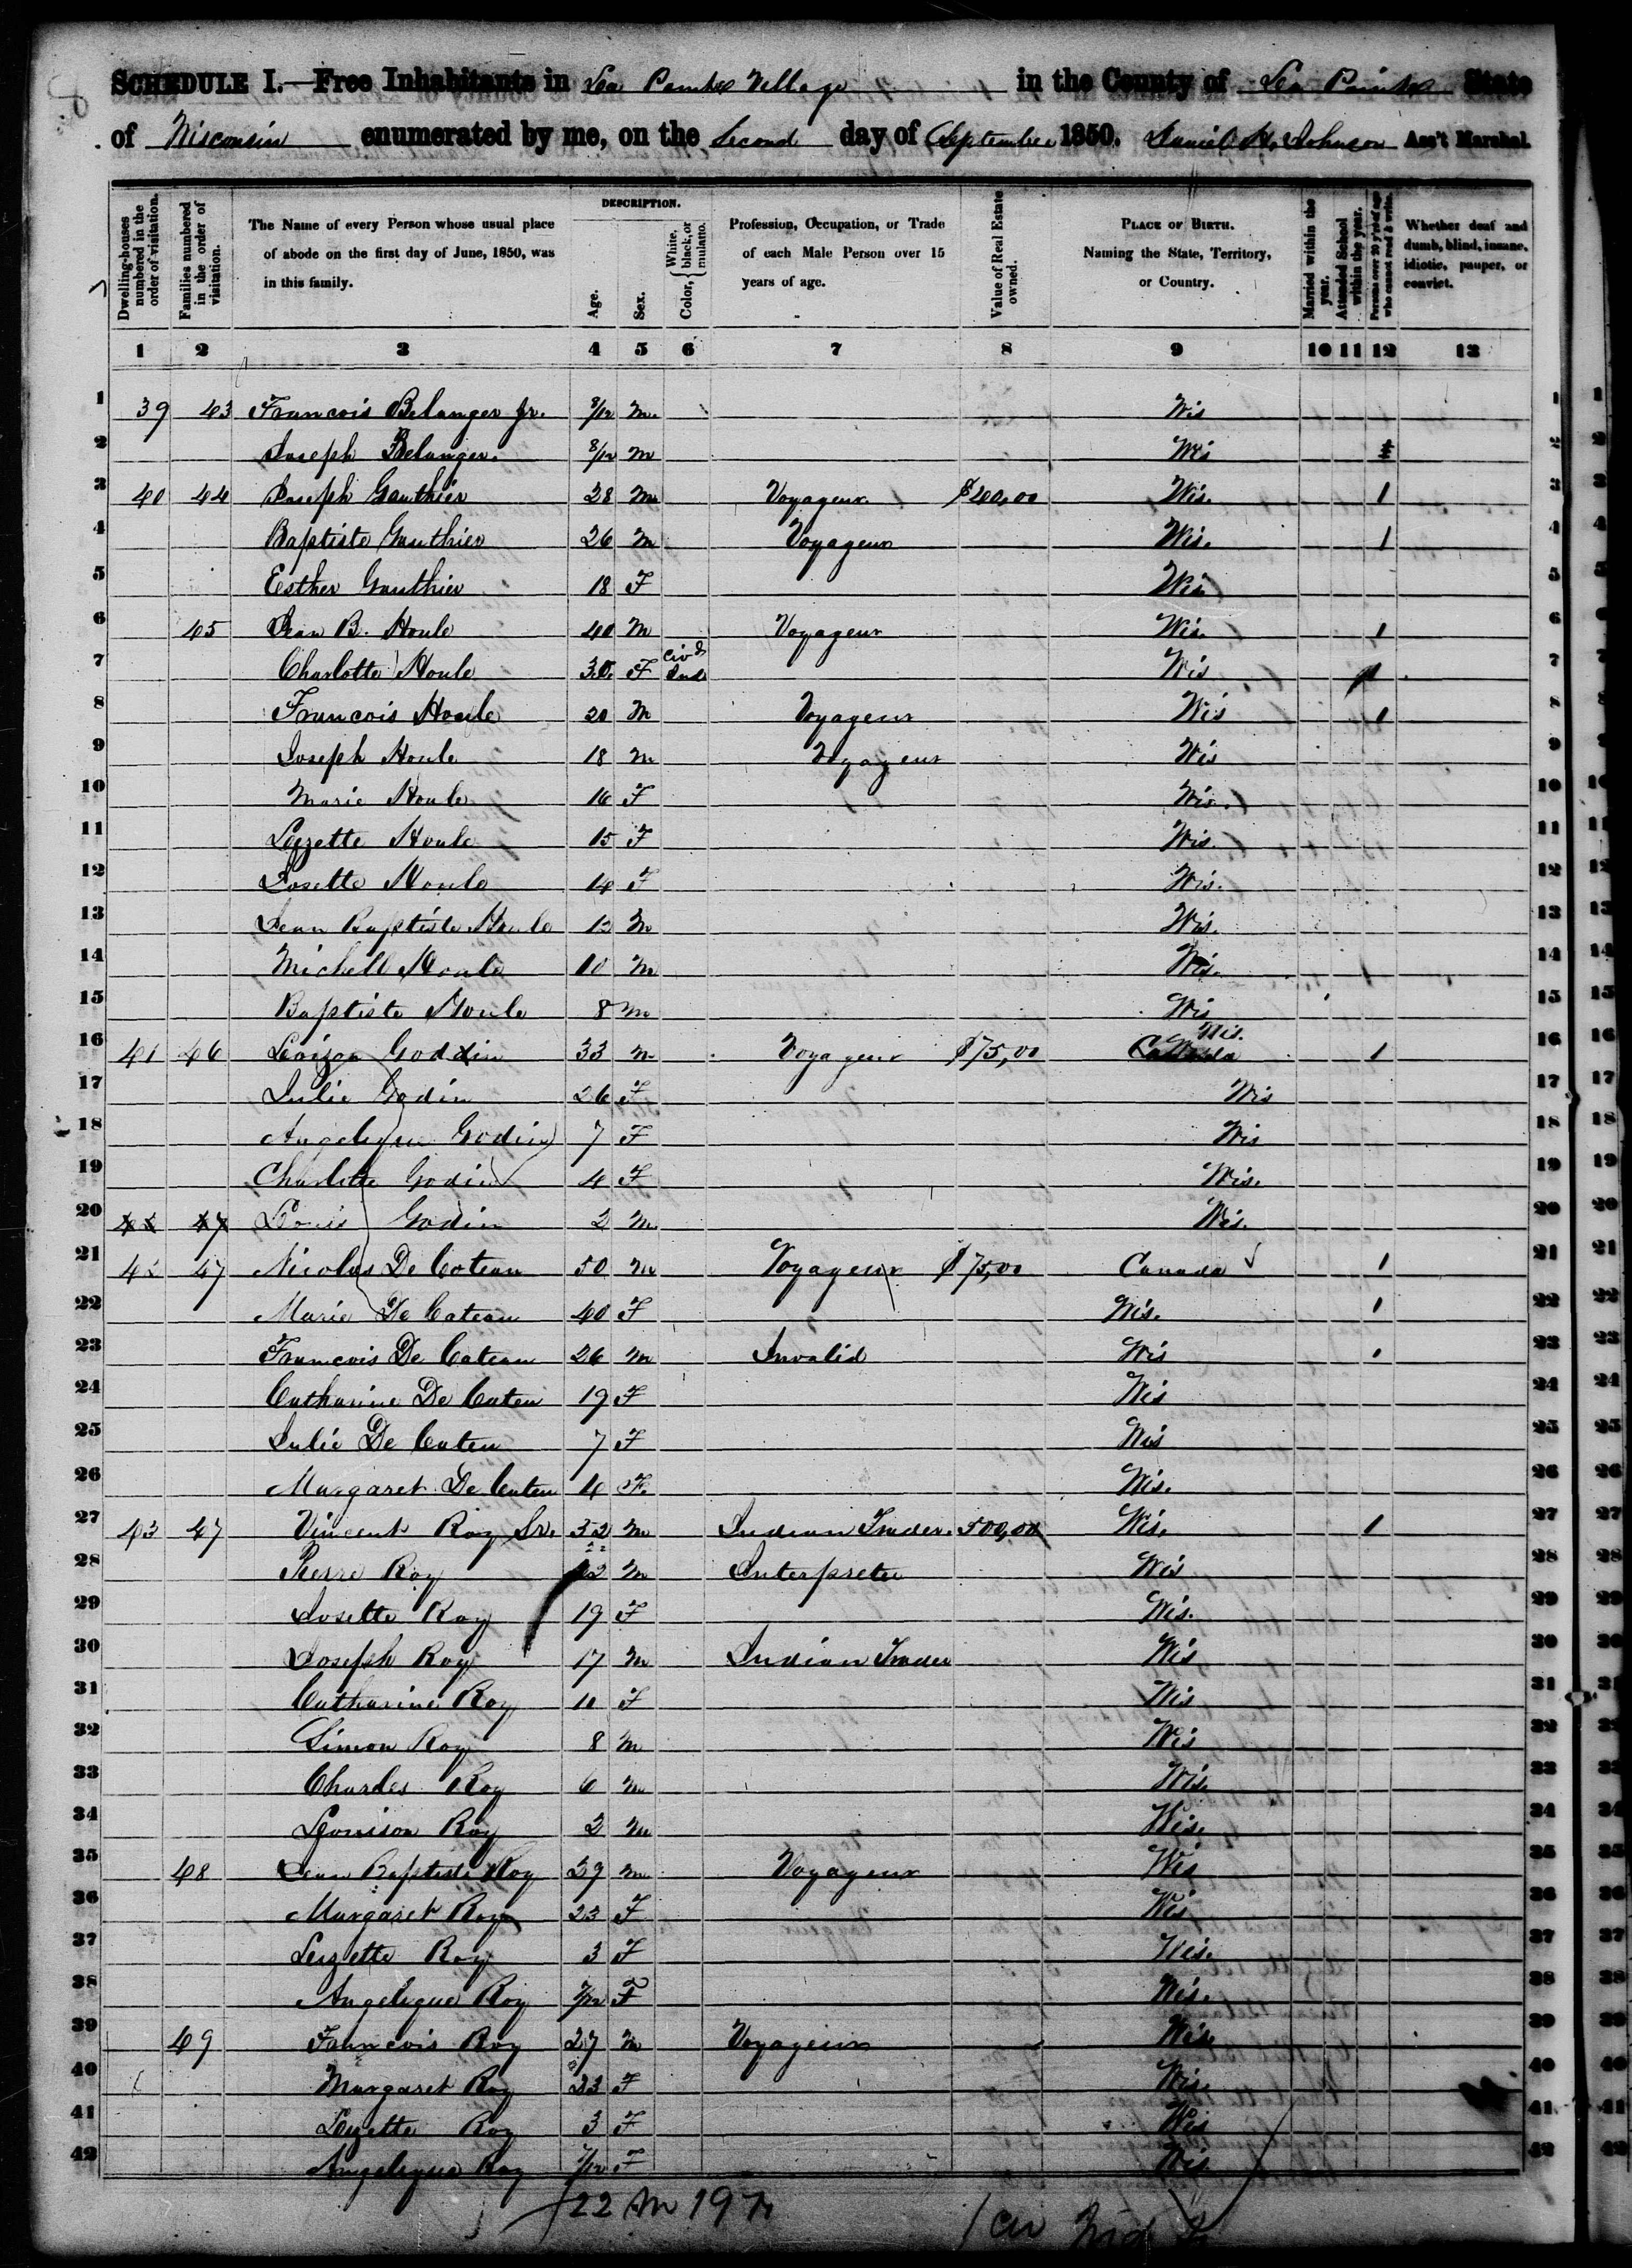 SCHEDULE I.—Free Inhabitants in La Pointe Village in the County of La Pointe State
of Wisconsin enumerated by me, on the Second day of September 1850. Daniel H. Johnson Ass't Marshal.
Dwelling-houses numbered in the order of visitation.
Families numbered in the order of visitation.
The Name of every Person whose usual place of abode on the first day of June, 1850, was in this family.
DESCRIPTION.
Age.
Sex.
Color, { White, black, or mulatto.
Profession, Occupation, or Trade of each Male Person over 15 years of age.
Value of Real Estate owned.
PLACE OF BIRTH. Naming the State, Territory, or Country.
Married within the year.
Attended School within the year.
Persons over 20 y'rs of age who cannot read & write.
Whether deaf and dumb, blind, insane, idiotic, pauper, or convict.
1 2 3 4 5 6 7 8 9 10 11 12 13
1 39 43 Francois Belanger Jr. 8/12 M. Wis 1
2 Joseph Belanger. 8/12 M Wis 2
3 40 44 Joseph Gauthier 28 M Voyageur. $200,00 Wis. 1 3
4 Baptiste Gauthier 26 M Voyageur Wis. 1 4
5 Esther Gauthier 18 F Wis 5
6 45 Jean B. Houle 40 M Voyageur Wis. 1 6
7 Charlotte Houle 30. F Civd Ind Wis 1 7
8 Francois Houle 20 M Voyageur Wis 1 8
9 Joseph Houle 18 M Voyageur Wis 9
10 Marie Houle 16 F Wis. 10
11 Lizette Houle 15 F Wis. 11
12 Josette Houle 14 F Wis. 12
13 Jean Baptiste Houle 12 M Wis. 13
14 Michell Houle 10 M Wis. 14
15 Baptiste Houle 8 M Wis 15
16 41 46 Loizon Goddin 33 M Voyageur $75,00 Canada Wis. 1 16
17 Julie Godin 26 F Wis 17
18 Angelique Godin 7 F Wis 18
19 Charlotte Godin 4 F Wis. 19
20 42 47 Louis Godin 2 M Wis. 20
21 42 47 Nicolas De Coteau 50 M Voyageur $75,00 Canada 1 21
22 Marie De Coteau 40 F Wis. 1 22
23 Francois De Coteau 26 M Invalid Wis 1 23
24 Catharine De Coteu 19 F Wis 24
25 Julie De Coteu 7 F Wis 25
26 Margaret De Coteu 4 F. Wis. 26
27 43 47 Vincent Roy Sr. 52 M Indian Trader. 500,00 Wis. 1 27
28 Pierre Roy 22 M Interpreter Wis 28
29 Josette Roy 19 F Wis. 29
30 Joseph Roy 17 M Indian Trader Wis 30
31 Catharine Roy 11 F Wis 31
32 Simon Roy 8 M Wis 32
33 Charles Roy 6 M Wis. 33
34 Louison Roy 2 M Wis. 34
35 48 Jean Baptiste Roy 29 M Voyageur Wis 35
36 Margaret Roy 23 F Wis 36
37 Lizette Roy 3 F Wis. 37
38 Angelique Roy 7/12 F Wis. 38
39 49 Francois Roy 27 M Voyageur Wis. 39
40 Margaret Roy 23 F Wis. 40
41 Lizette Roy 3 F Wis 41
42 Angelique Roy 7/12 F Wis. 42
22 M 19 F
1 Civ Ind F